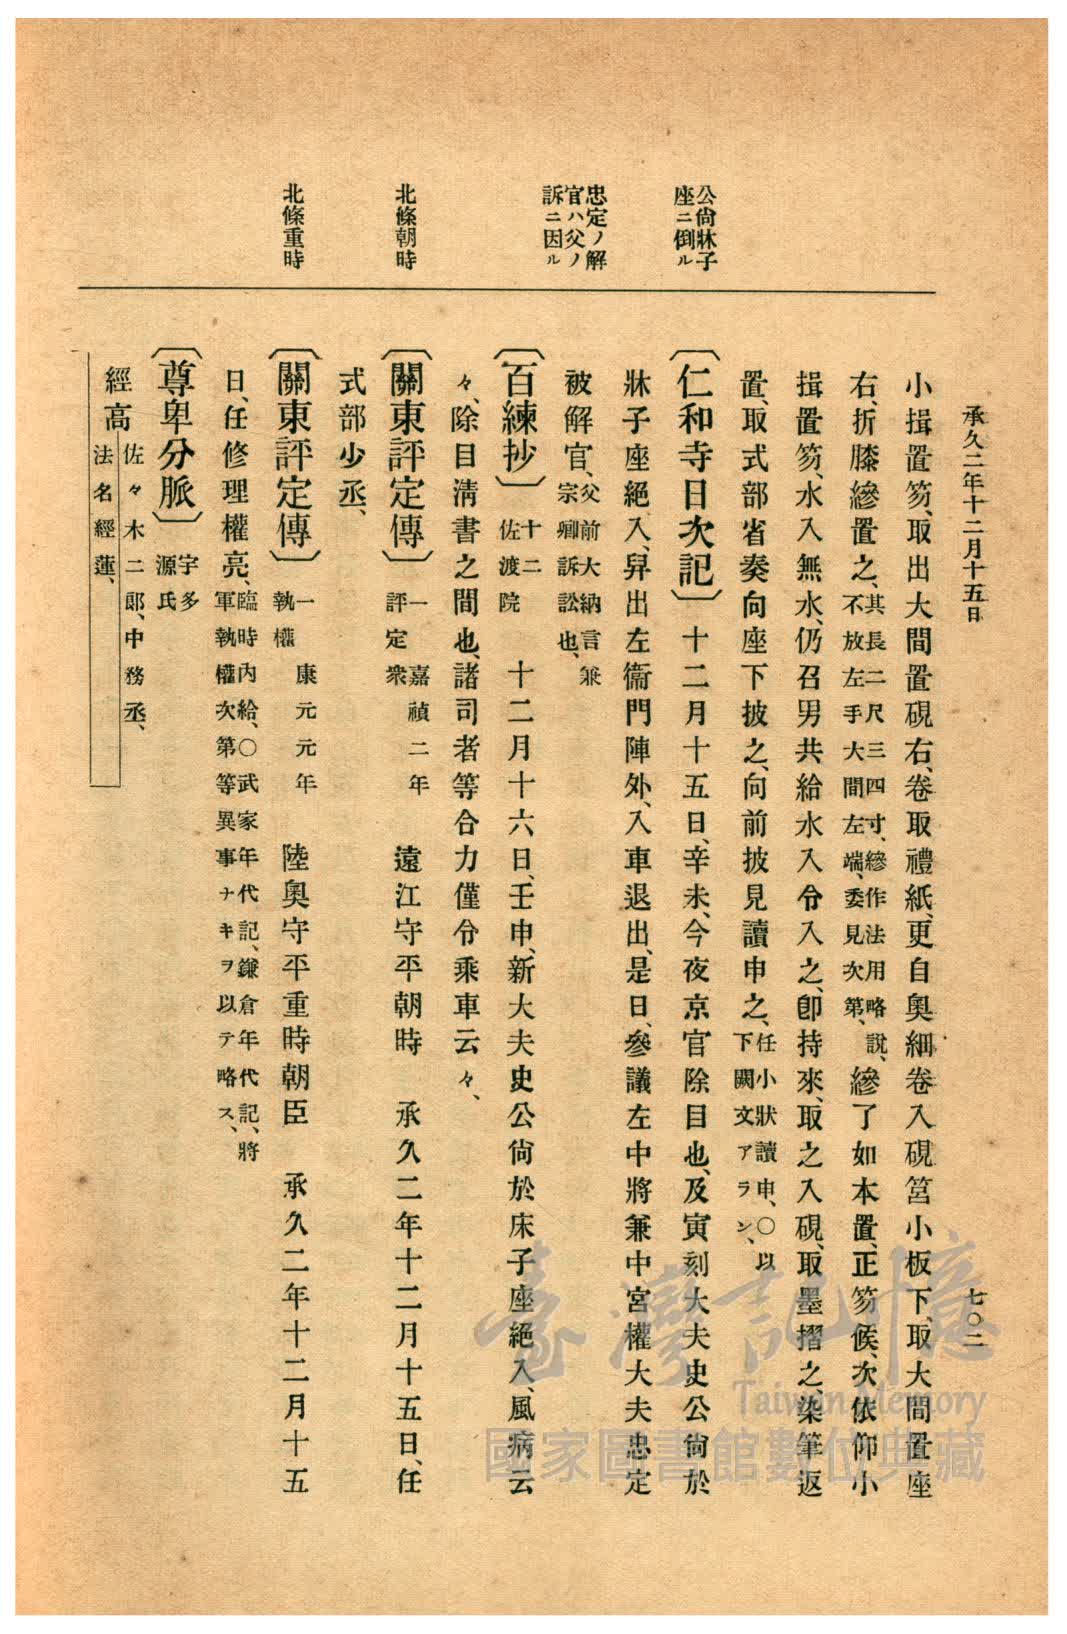 承久二年十二月十五日
七〇二
公尙牀子
座ニ倒ル
忠定ノ解
官ハ父ノ
訴ニ因ル
北條朝時
北條重時
小揖置笏、取出大間置硯右、卷取禮紙、更自奧細卷入硯筥小板下、取大間置座
右、折膝縿置之、其長二尺三四寸、縿作法用略說、
不放左手大間左端、委見次第、縿了如本置、正笏候、次依仰小
揖置笏、水入無水、仍召男共給水入令入之、卽持來、取之入硯、取墨摺之、染筆返
置、取式部省奏向座下披之、向前披見讀申之、任小狀讀申、〇以
下闕文アラン、
〔仁和寺日次記〕十二月十五日、辛未、今夜京官除目也、及寅刻大夫史公尙於
牀子座絕入、舁出左衞門陣外、入車退出、是日、參議左中將兼中宮權大夫忠定
被解官、父前大納言兼
宗卿訴訟也、
〔百練抄〕十二
佐渡院 十二月十六日、壬申、新大夫史公尙於床子座絕入、風病云
々、除目淸書之間也、諸司者等合力僅令乘車云々、
〔關東評定傳〕一
評定衆 嘉禎二年 遠江守平朝時 承久二年十二月十五日、任
式部少丞、
〔關東評定傳〕一
執權 康元元年 陸奧守平重時朝臣 承久二年十二月十五
日、任修理權亮、臨時內給、〇武家年代記、鎌倉年代記、將
軍執權次第等異事ナキヲ以テ略ス、
〔尊卑分脈〕宇多
源氏
經高 佐々木二郞、中務丞、
法名經蓮、
臺灣記憶
Taiwan Memory
國家圖書館數位典藏